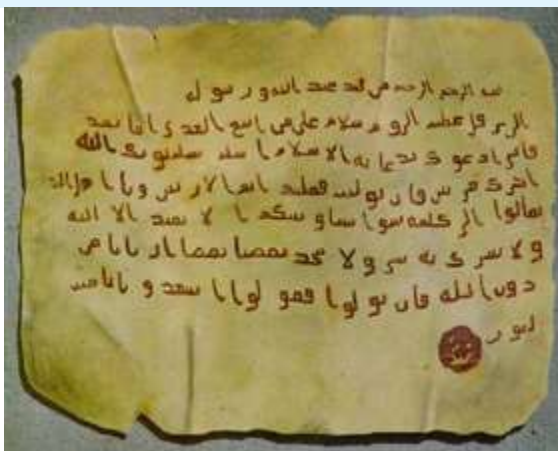 الرحمن الرحيم من محمد عبد الله و رسوله
الى هرقل عظيم الروم سلام على من اتبع الهدى اما بعد
فانى ادعوك بدعاية الاسلام اسلم تسلم يوتك الله
اجرك مرتين فان توليت فعليك اثم الاريسين ويا اهل
تعالوا الى كلمة سوا بيننا وبينكم ا لا نعبد الا الله
ولا نشرك به شيا ولا يتخذ بعضنا بعضا اربابا من
دون الله فان تولوا فقولوا اشهدوا بانا مس
لمون